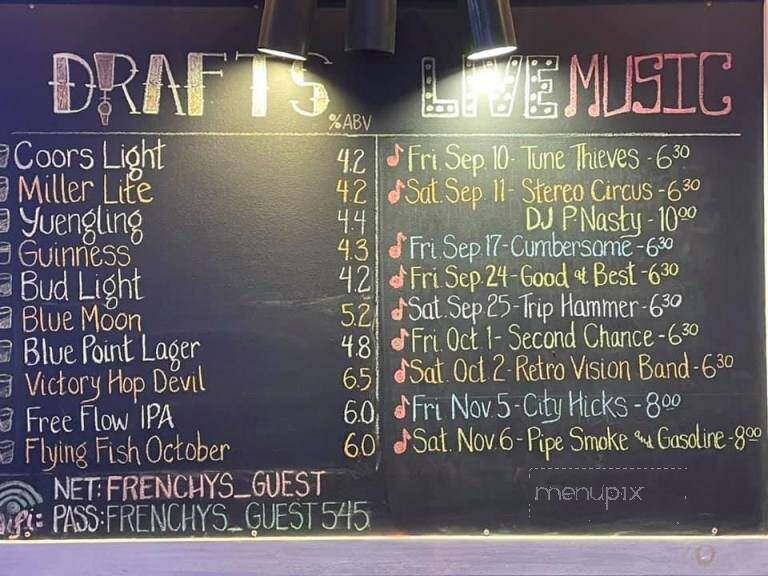 DRAFTS
%ABV
Coors Light 4.2
Miller Lite 4.2
Yuengling 4.4
Guinness 4.3
Bud Light 4.2
Blue Moon 5.2
Blue Point Lager 4.8
Victory Hop Devil 6.5
Free Flow IPA 6.0
Flying Fish October 6.0
NET: FRENCHYS_GUEST
PASS: FRENCHYS_GUEST545
LIVE MUSIC
Fri. Sep. 10 - Tune Thieves - 6 30
Sat. Sep. 11 - Stereo Circus - 6 30
DJ P Nasty - 10 00
Fri. Sep 17 - Cumbersome - 6 30
Fri. Sep 24 - Good at Best - 6 30
Sat. Sep 25 - Trip Hammer - 6 30
Fri. Oct 1 - Second Chance - 6 30
Sat. Oct 2 - Retro Vision Band - 6 30
Fri Nov. 5 - City Hicks - 8 00
Sat. Nov. 6 - Pipe Smoke and Gasoline - 8 00
menupix